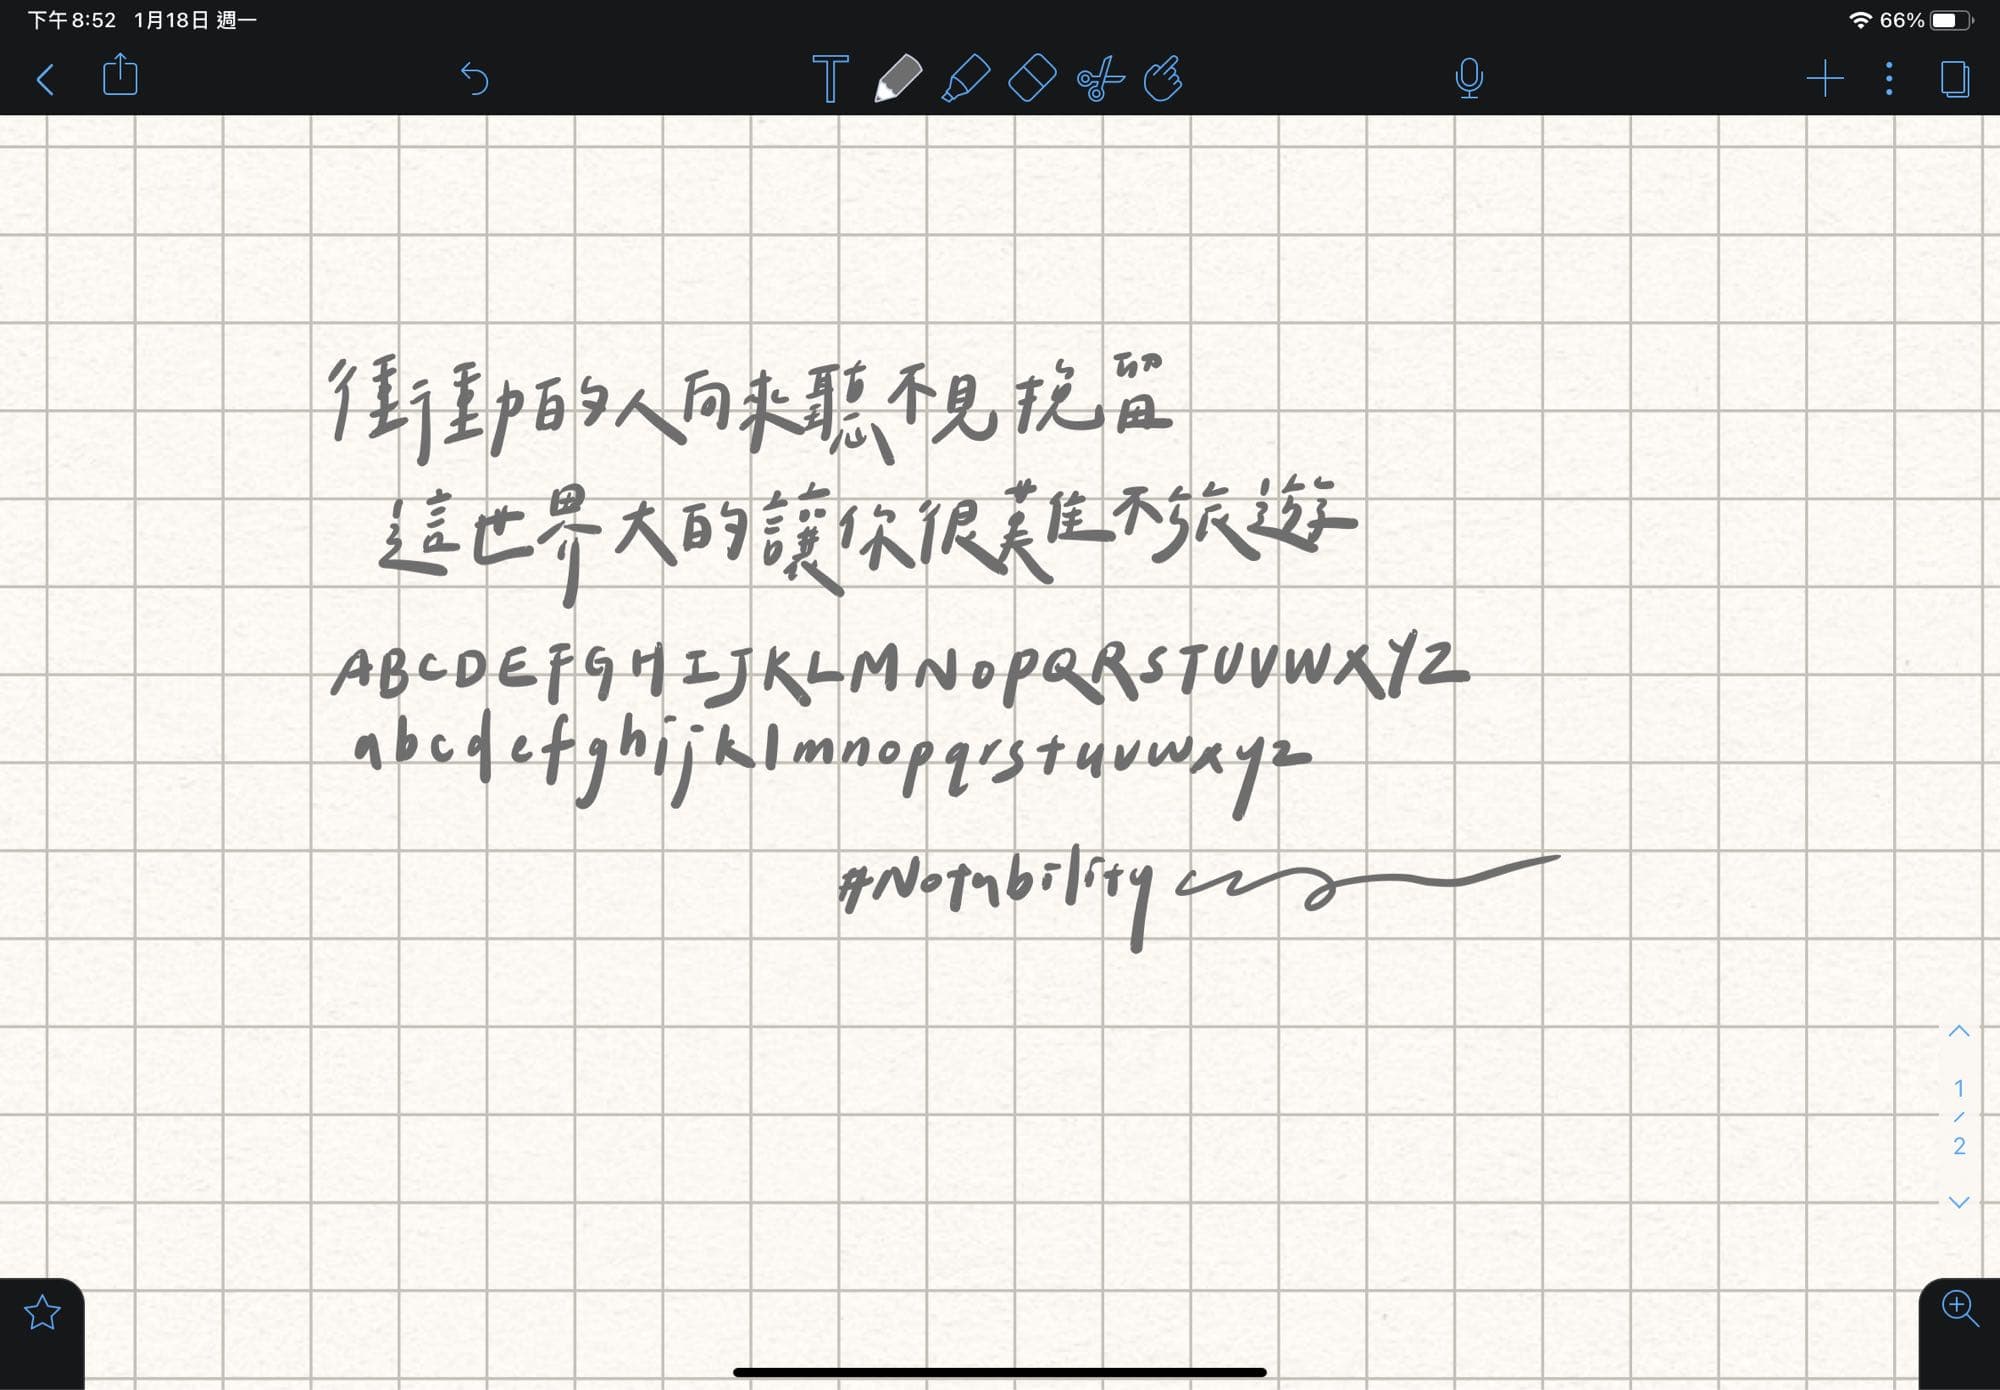 下午8:52 1月18日 週一
66%
T
衝動的人向來聽不見挽留
這世界大的讓你很難不旅遊
ABCDEFGHIJKLMNOPQRSTUVWXYZ
abcdefghijklmnopqrstuvwxyz
#Notability
1
/
2